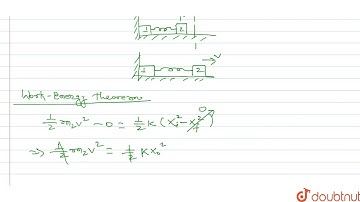 1 2
1 2 → v
Work-Energy theorem
½ m₂v² - 0 = ½ k (x₀² - x₀²/4) 0
⇒ ½ m₂v² = ½ kx₀²
doubtnut